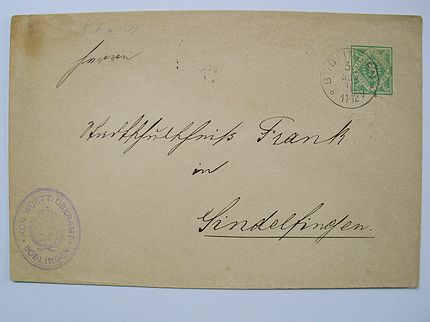 Herrn
Stadtschultheiß Frank
in
Sindelfingen.
KÖN. WÜRTT. OBERAMT
BOELINGEN